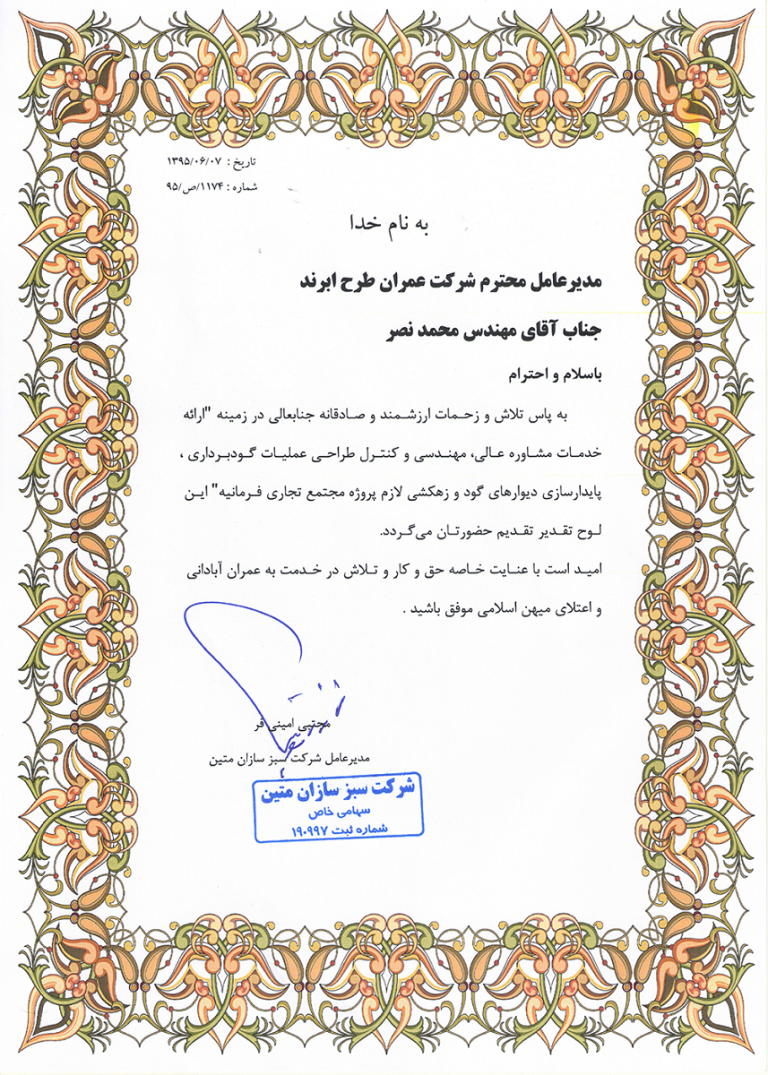 تاریخ : ۱۳۹۵/۰۶/۰۷
شماره : ۱۱۷۴/ص/۹۵
به نام خدا
مدیرعامل محترم شرکت عمران طرح ابرند
جناب آقای مهندس محمد نصر
باسلام و احترام
به پاس تلاش و زحمات ارزشمند و صادقانه جنابعالی در زمینه "ارائه
خدمات مشاوره عالی، مهندسی و کنترل طراحی عملیات گودبرداری ،
پایدارسازی دیوارهای گود و زهکشی لازم پروژه مجتمع تجاری فرمانیه" این
لوح تقدیر تقدیم حضورتان می‌گردد.
امید است با عنایت خاصه حق و کار و تلاش در خدمت به عمران آبادانی
و اعتلای میهن اسلامی موفق باشید .
مجتبی امینی فر
مدیرعامل شرکت سبز سازان متین
شرکت سبز سازان متین
سهامی خاص
شماره ثبت ۱۹۰۹۹۷